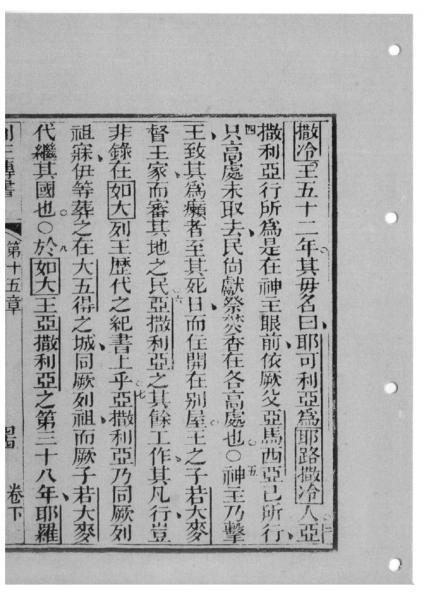 撒冷王五十二年其母名曰耶可利亞爲耶路撒冷人亞
三
撒利亞行所爲是在神王眼前依厥父亞馬西亞已所行
四
只高處未取去民尙獻祭焚香在各高處也○神王乃擊
五
王致其爲癩者至其死日而住開在别屋王之子若大麥
督王家而審其地之民亞撒利亞之其餘工作其凡行豈
六
非錄在如大列王歷代之紀書上乎亞撒利亞乃同厥列
七
祖寐伊等葬之在大五得之城同厥列祖而厥子若大麥
代繼其國也○於如大王亞撒利亞之第三十八年耶羅
八
列王傳書
第十五章
卷下